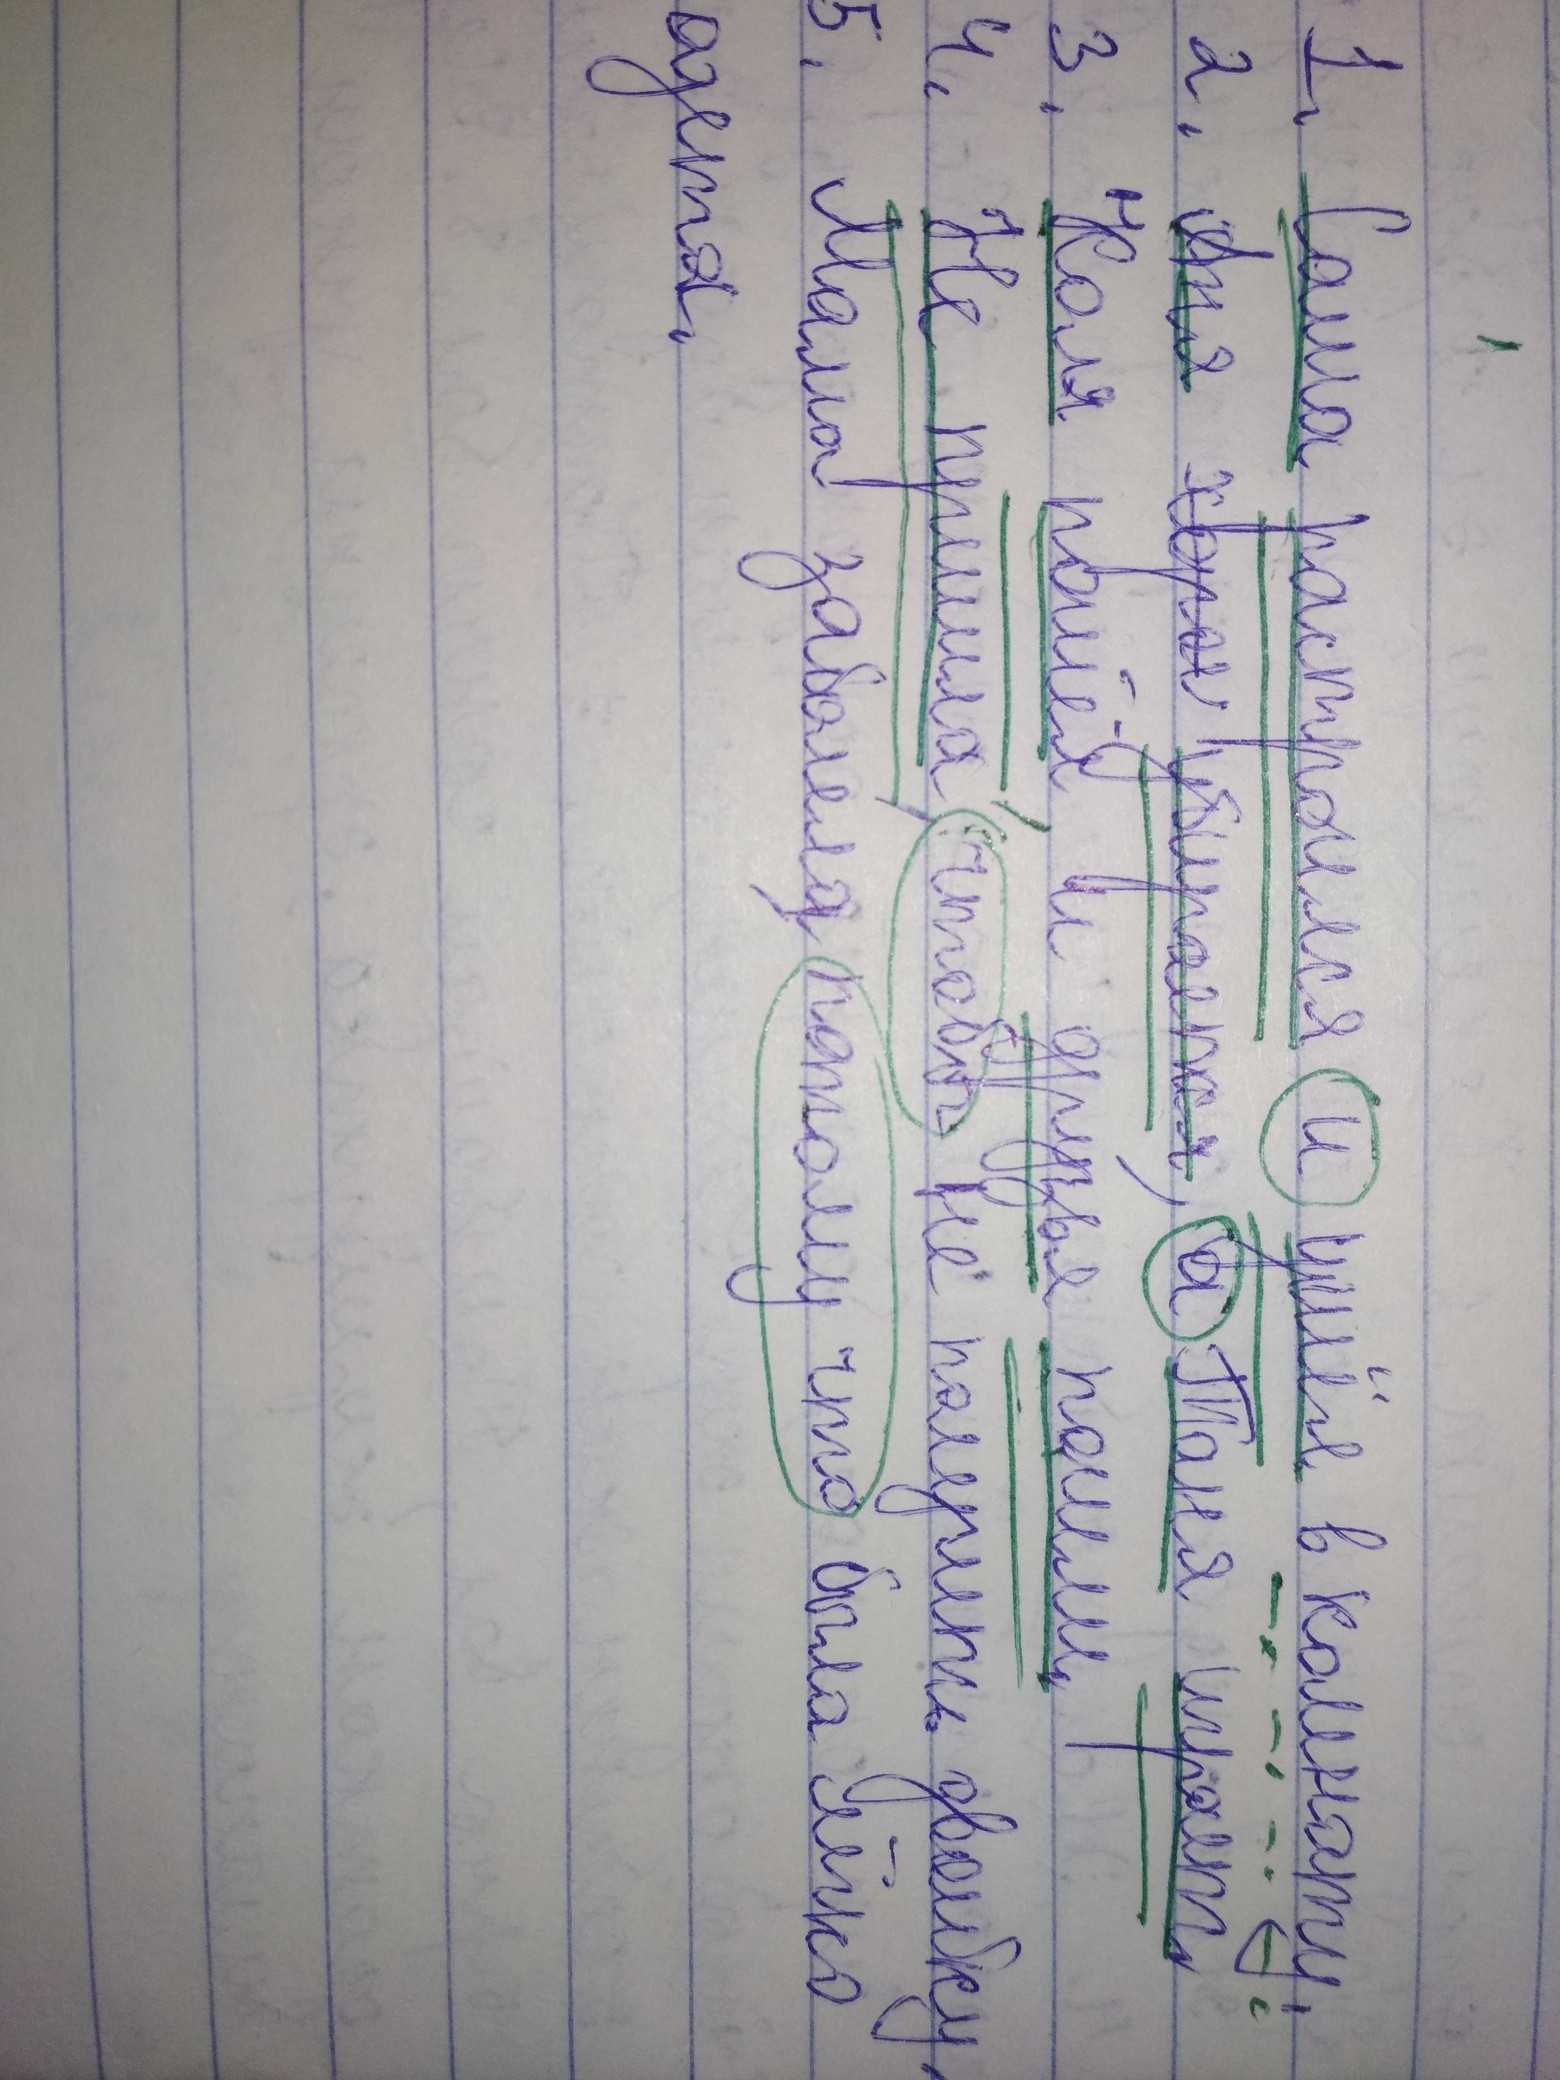 1. Саша растроился и ушёл в комнату.
2. Аня убирается, а Таня играет.
3. Коля пошёл и друзья пошли.
4. Не пришла, чтобы не получить двойку.
5. Мама заболела, потому что была лёгко
адета.